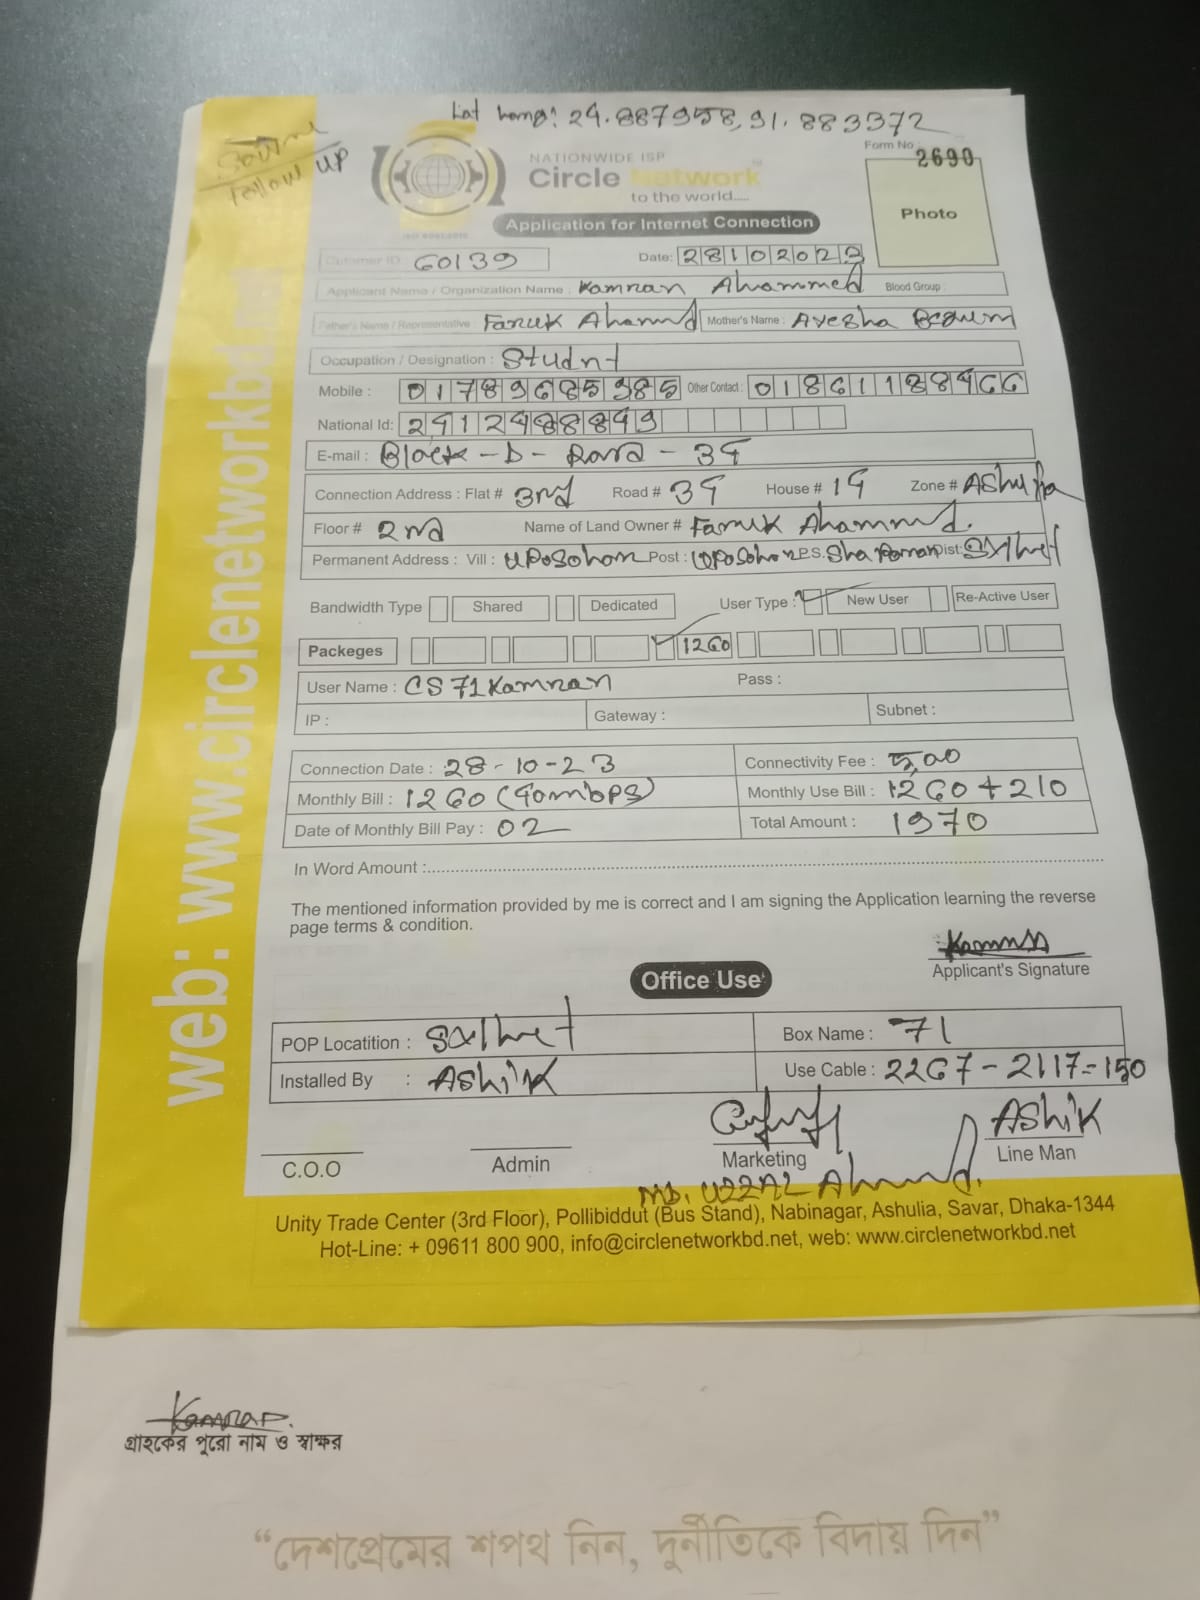 Lat long: 24.887958, 91.883372
Follow UP
Form No
2690
NATIONWIDE ISP
Circle Network
to the world.....
Photo
Application for Internet Connection
Customer ID : 60139 Date: 28102023
Applicant Name / Organization Name : Kamran Ahammed Blood Group :
Father's Name / Representative : Faruk Ahamd Mother's Name : Ayesha Begum
Occupation / Designation : Studnt
Mobile : 01789685385 Other Contact : 01861188466
National Id: 2412498849
E-mail : Block-D-Road-34
Connection Address : Flat # 3rd Road # 34 House # 14 Zone # Ashulia
Floor # 2nd Name of Land Owner # Faruk Ahammd.
Permanent Address : Vill : Uposohon Post : Uposohon P.S. Sha Poran Dist: Sylhet
Bandwidth Type Shared Dedicated User Type : New User Re-Active User
Packeges 1260
User Name : CS71Kamran Pass :
IP : Gateway : Subnet :
Connection Date : 28-10-23 Connectivity Fee : 500
Monthly Bill : 1260 (40mbps) Monthly Use Bill : 1260+210
Date of Monthly Bill Pay : 02 Total Amount : 1970
In Word Amount :
The mentioned information provided by me is correct and I am signing the Application learning the reverse
page terms & condition.
Applicant's Signature
Office Use
POP Locatition : Sylhet Box Name : 71
Installed By : Ashik Use Cable : 2267-2117=150
ASHIK
C.O.O Admin Marketing Line Man
MD. UZZAL Ahmed.
Unity Trade Center (3rd Floor), Pollibiddut (Bus Stand), Nabinagar, Ashulia, Savar, Dhaka-1344
Hot-Line: + 09611 800 900, info@circlenetworkbd.net, web: www.circlenetworkbd.net
web: www.circlenetworkbd.net
Kamran.
গ্রাহকের পুরো নাম ও স্বাক্ষর
“দেশপ্রেমের শপথ নিন, দুর্নীতিকে বিদায় দিন”